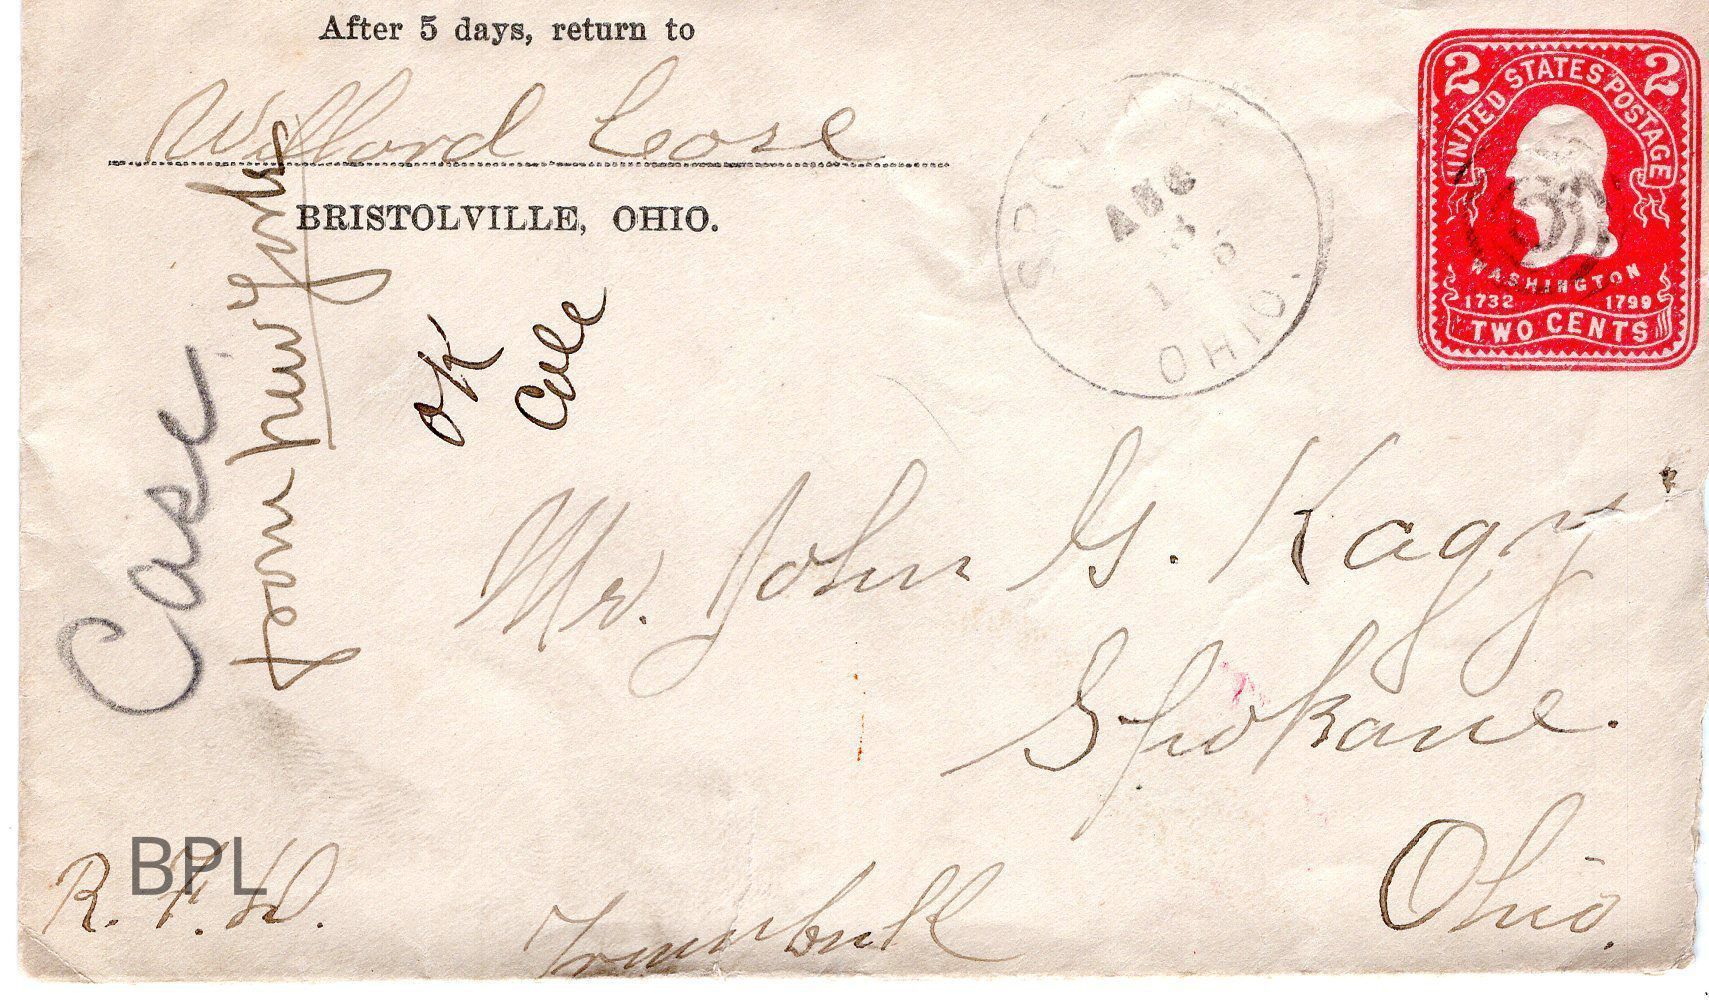 After 5 days, return to
Wilford Case
BRISTOLVILLE, OHIO.
SPOKANE
AUG
3
OHIO.
2 2
UNITED STATES POSTAGE
WASHINGTON
1732 1799
TWO CENTS
Case
from New York
OK
Cole
Mr. John G. Kagy
Spokane.
Ohio.
Trumbull
R. F. D.
BPL